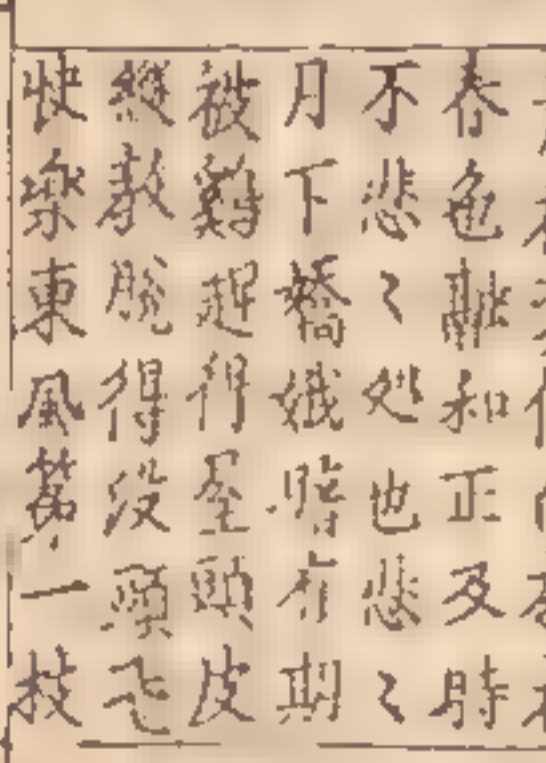 春色融和正及時
不悲〻処也悲〻
月下嬌娥賭有期
被趕得頭皮
教脫得没頭
快樂東風第一枝